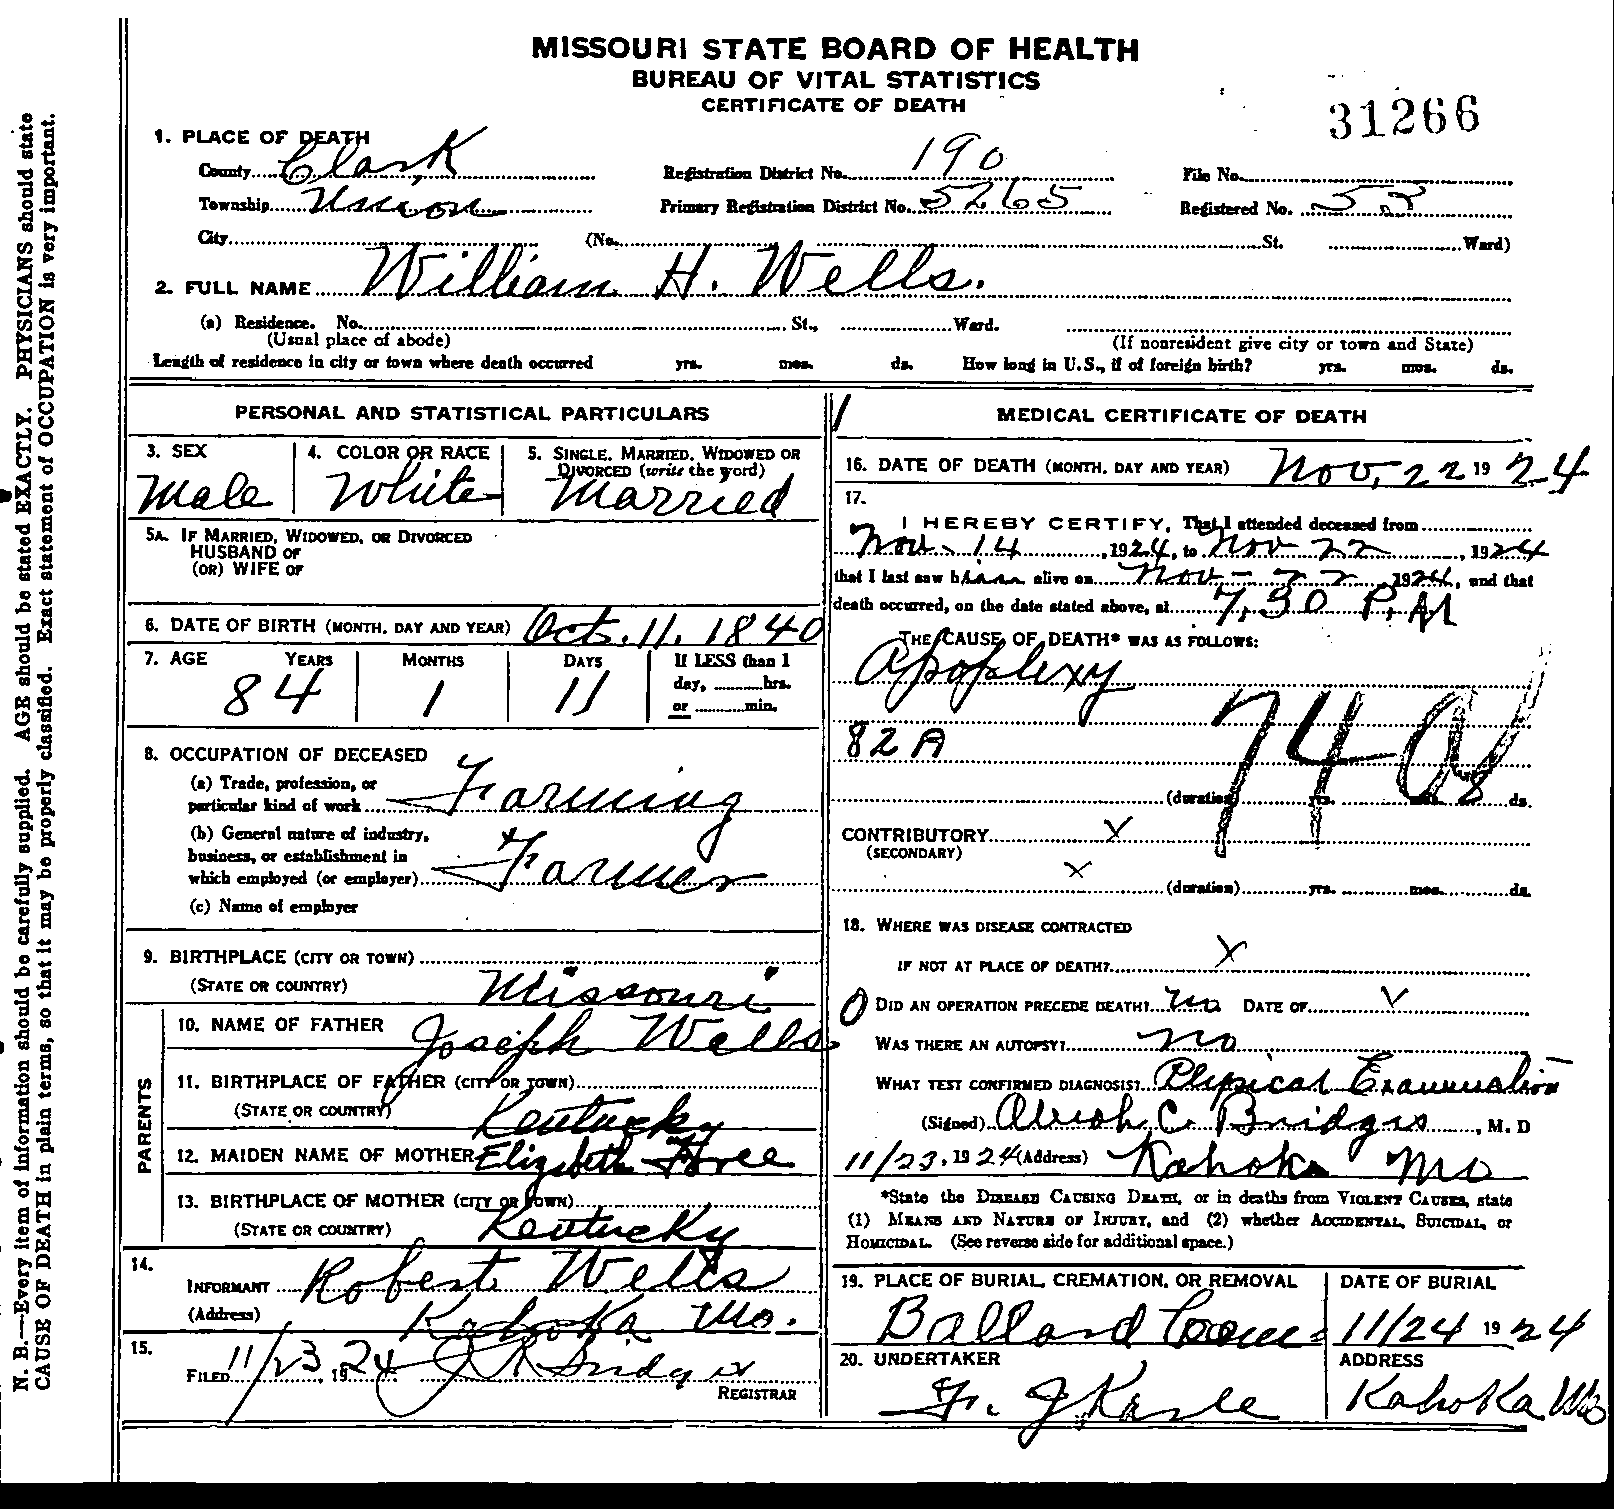 MISSOURI STATE BOARD OF HEALTH
BUREAU OF VITAL STATISTICS
CERTIFICATE OF DEATH
31266
1. PLACE OF DEATH
County Clark Registration District No. 190 File No.
Township Union Primary Registration District No. 5265 Registered No. 53
City (No. St. Ward)
2. FULL NAME William H. Wells.
(a) Residence. No. St., Ward.
(Usual place of abode) (If nonresident give city or town and State)
Length of residence in city or town where death occurred yrs. mos. ds. How long in U.S., if of foreign birth? yrs. mos. ds.
PERSONAL AND STATISTICAL PARTICULARS
3. SEX 4. COLOR OR RACE 5. SINGLE, MARRIED, WIDOWED OR DIVORCED (write the word)
Male White Married
5A. IF MARRIED, WIDOWED, OR DIVORCED
HUSBAND OF
(OR) WIFE OF
6. DATE OF BIRTH (MONTH, DAY AND YEAR) Oct. 11. 1840
7. AGE YEARS MONTHS DAYS If LESS than 1
day, hrs.
or min.
84 1 11
8. OCCUPATION OF DECEASED
(a) Trade, profession, or
particular kind of work Farming
(b) General nature of industry,
business, or establishment in
which employed (or employer) Farmer
(c) Name of employer
9. BIRTHPLACE (CITY OR TOWN)
(STATE OR COUNTRY) Missouri
PARENTS
10. NAME OF FATHER Joseph Wells
11. BIRTHPLACE OF FATHER (CITY OR TOWN)
(STATE OR COUNTRY) Kentucky
12. MAIDEN NAME OF MOTHER Elizabeth
13. BIRTHPLACE OF MOTHER (CITY OR TOWN)
(STATE OR COUNTRY) Kentucky
14.
INFORMANT Robert Wells
(Address) Kahoka Mo.
15.
FILED 11/23, 1924 J R Bridges
REGISTRAR
MEDICAL CERTIFICATE OF DEATH
16. DATE OF DEATH (MONTH, DAY AND YEAR) Nov, 22 1924
17.
I HEREBY CERTIFY, That I attended deceased from
Nov. 14, 1924, to Nov 22, 1924
that I last saw him alive on Nov - 22, 1924, and that
death occurred, on the date stated above, at 7,30 P.M
THE CAUSE OF DEATH* WAS AS FOLLOWS:
Apoplexy
82 A
74
(duration) yrs. mos. 8 ds.
CONTRIBUTORY X
(SECONDARY)
X (duration) yrs. mos. ds.
18. WHERE WAS DISEASE CONTRACTED
IF NOT AT PLACE OF DEATH? X
DID AN OPERATION PRECEDE DEATH? No DATE OF
WAS THERE AN AUTOPSY? No
WHAT TEST CONFIRMED DIAGNOSIS? Physical Examination
(Signed) C. Bridges, M. D
11/23, 1924 (Address) Kahoka Mo
*State the DISEASE CAUSING DEATH, or in deaths from VIOLENT CAUSES, state
(1) MEANS AND NATURE OF INJURY, and (2) whether ACCIDENTAL, SUICIDAL, or
HOMICIDAL. (See reverse side for additional space.)
19. PLACE OF BURIAL, CREMATION, OR REMOVAL DATE OF BURIAL
Ballard Cem 11/24 1924
20. UNDERTAKER ADDRESS
Kahoka Mo
N. B.—Every item of information should be carefully supplied. AGE should be stated EXACTLY. PHYSICIANS should state
CAUSE OF DEATH in plain terms, so that it may be properly classified. Exact statement of OCCUPATION is very important.